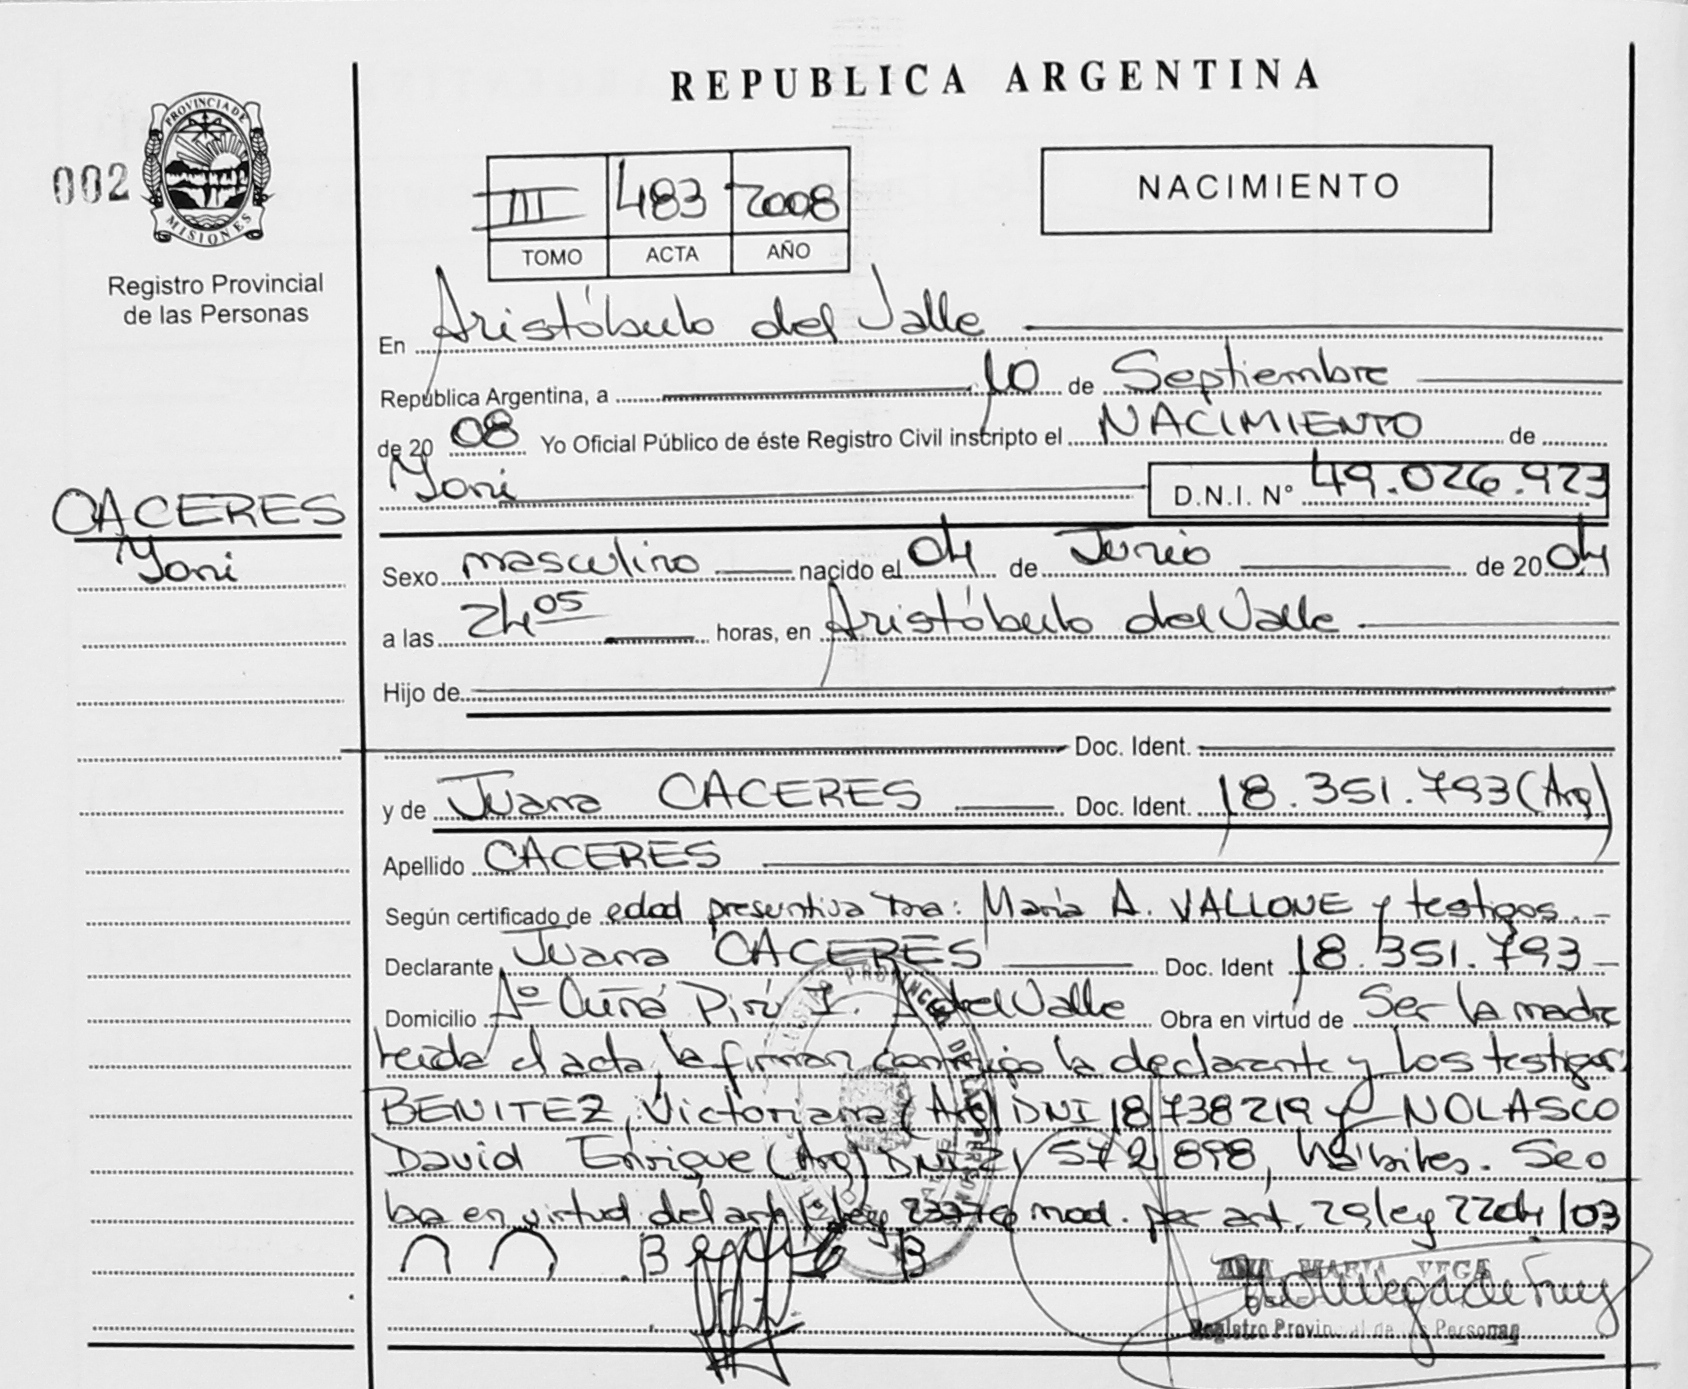 REPUBLICA ARGENTINA
PROVINCIA DE
MISIONES
002
III 483 2008
TOMO ACTA AÑO
NACIMIENTO
Registro Provincial
de las Personas
En Aristóbulo del Valle
República Argentina, a 10 de Septiembre
de 20 08 Yo Oficial Público de éste Registro Civil inscripto el NACIMIENTO de
Yoni D.N.I. N° 49.026.923
CACERES
Yoni
Sexo masculino nacido el 04 de Junio de 20 04
a las 24 05 horas, en Aristóbulo del Valle
Hijo de
Doc. Ident.
y de Juana CACERES Doc. Ident. 18.351.793 (Arg)
Apellido CACERES
Según certificado de edad presuntiva Dra: María A. VALLONE y testigos.
Declarante Juana CACERES Doc. Ident 18.351.793
Domicilio Aº Cuñá Pirú I. A del Valle Obra en virtud de Ser la madre
leída el acta, la firman conmigo la declarante y los testigos:
BENITEZ, Victoriana (Arg) DNI 18 738 219 y NOLASCO
David Enrique (Arg) DNI 21 572 898, hábiles. Se o
ba en virtud del art 1º ley mod. por art. 29 ley 2204/03
MARIA VEGA
Registro Provincial de las Personas